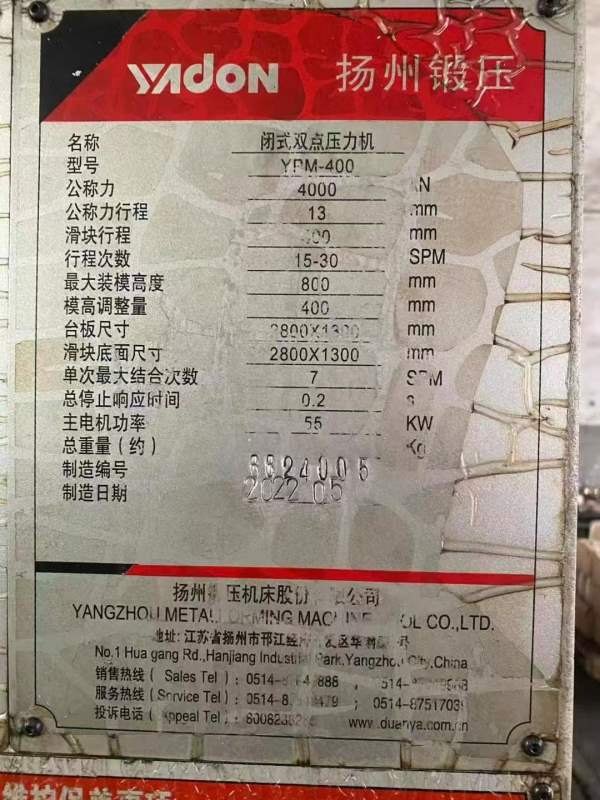 YADON 扬州锻压
名称 闭式双点压力机
型号 YPM-400
公称力 4000 KN
公称力行程 13 mm
滑块行程 mm
行程次数 15-30 SPM
最大装模高度 800 mm
模高调整量 400 mm
台板尺寸 2800X1300 mm
滑块底面尺寸 2800X1300 mm
单次最大结合次数 7 SPM
总停止响应时间 0.2 s
主电机功率 55 KW
总重量(约) Kg
制造编号 6824005
制造日期 2022.05
扬州锻压机床股份有限公司
YANGZHOU METAL FORMING MACHINE TOOL CO.,LTD.
地址: 江苏省扬州市邗江经济开发区华钢路 号
No.1 Hua gang Rd.,Hanjiang Industrial Park,Yangzhou City,China
销售热线 ( Sales Tel ) : 0514-
服务热线 (Service Tel) : 0514- 0514-87517039
投诉电话 ( Appeal Tel ) : www.duanya.com.cn